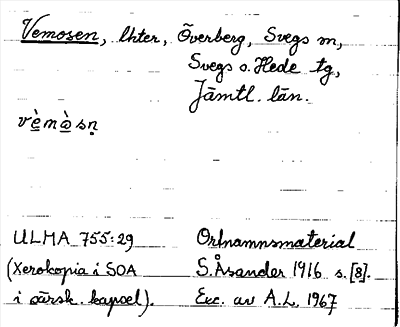 Vemosen, lhter, Överberg, Svegs sn,
Svegs o. Hede tg,
Jämtl. län.
vè̱mò̱sṇ
ULMA 755:29 Ortnamnsmaterial
(Xerokopia i SOA S. Åsander 1916 s. [8].
i särsk. kapsel). Exc. av A.L. 1967